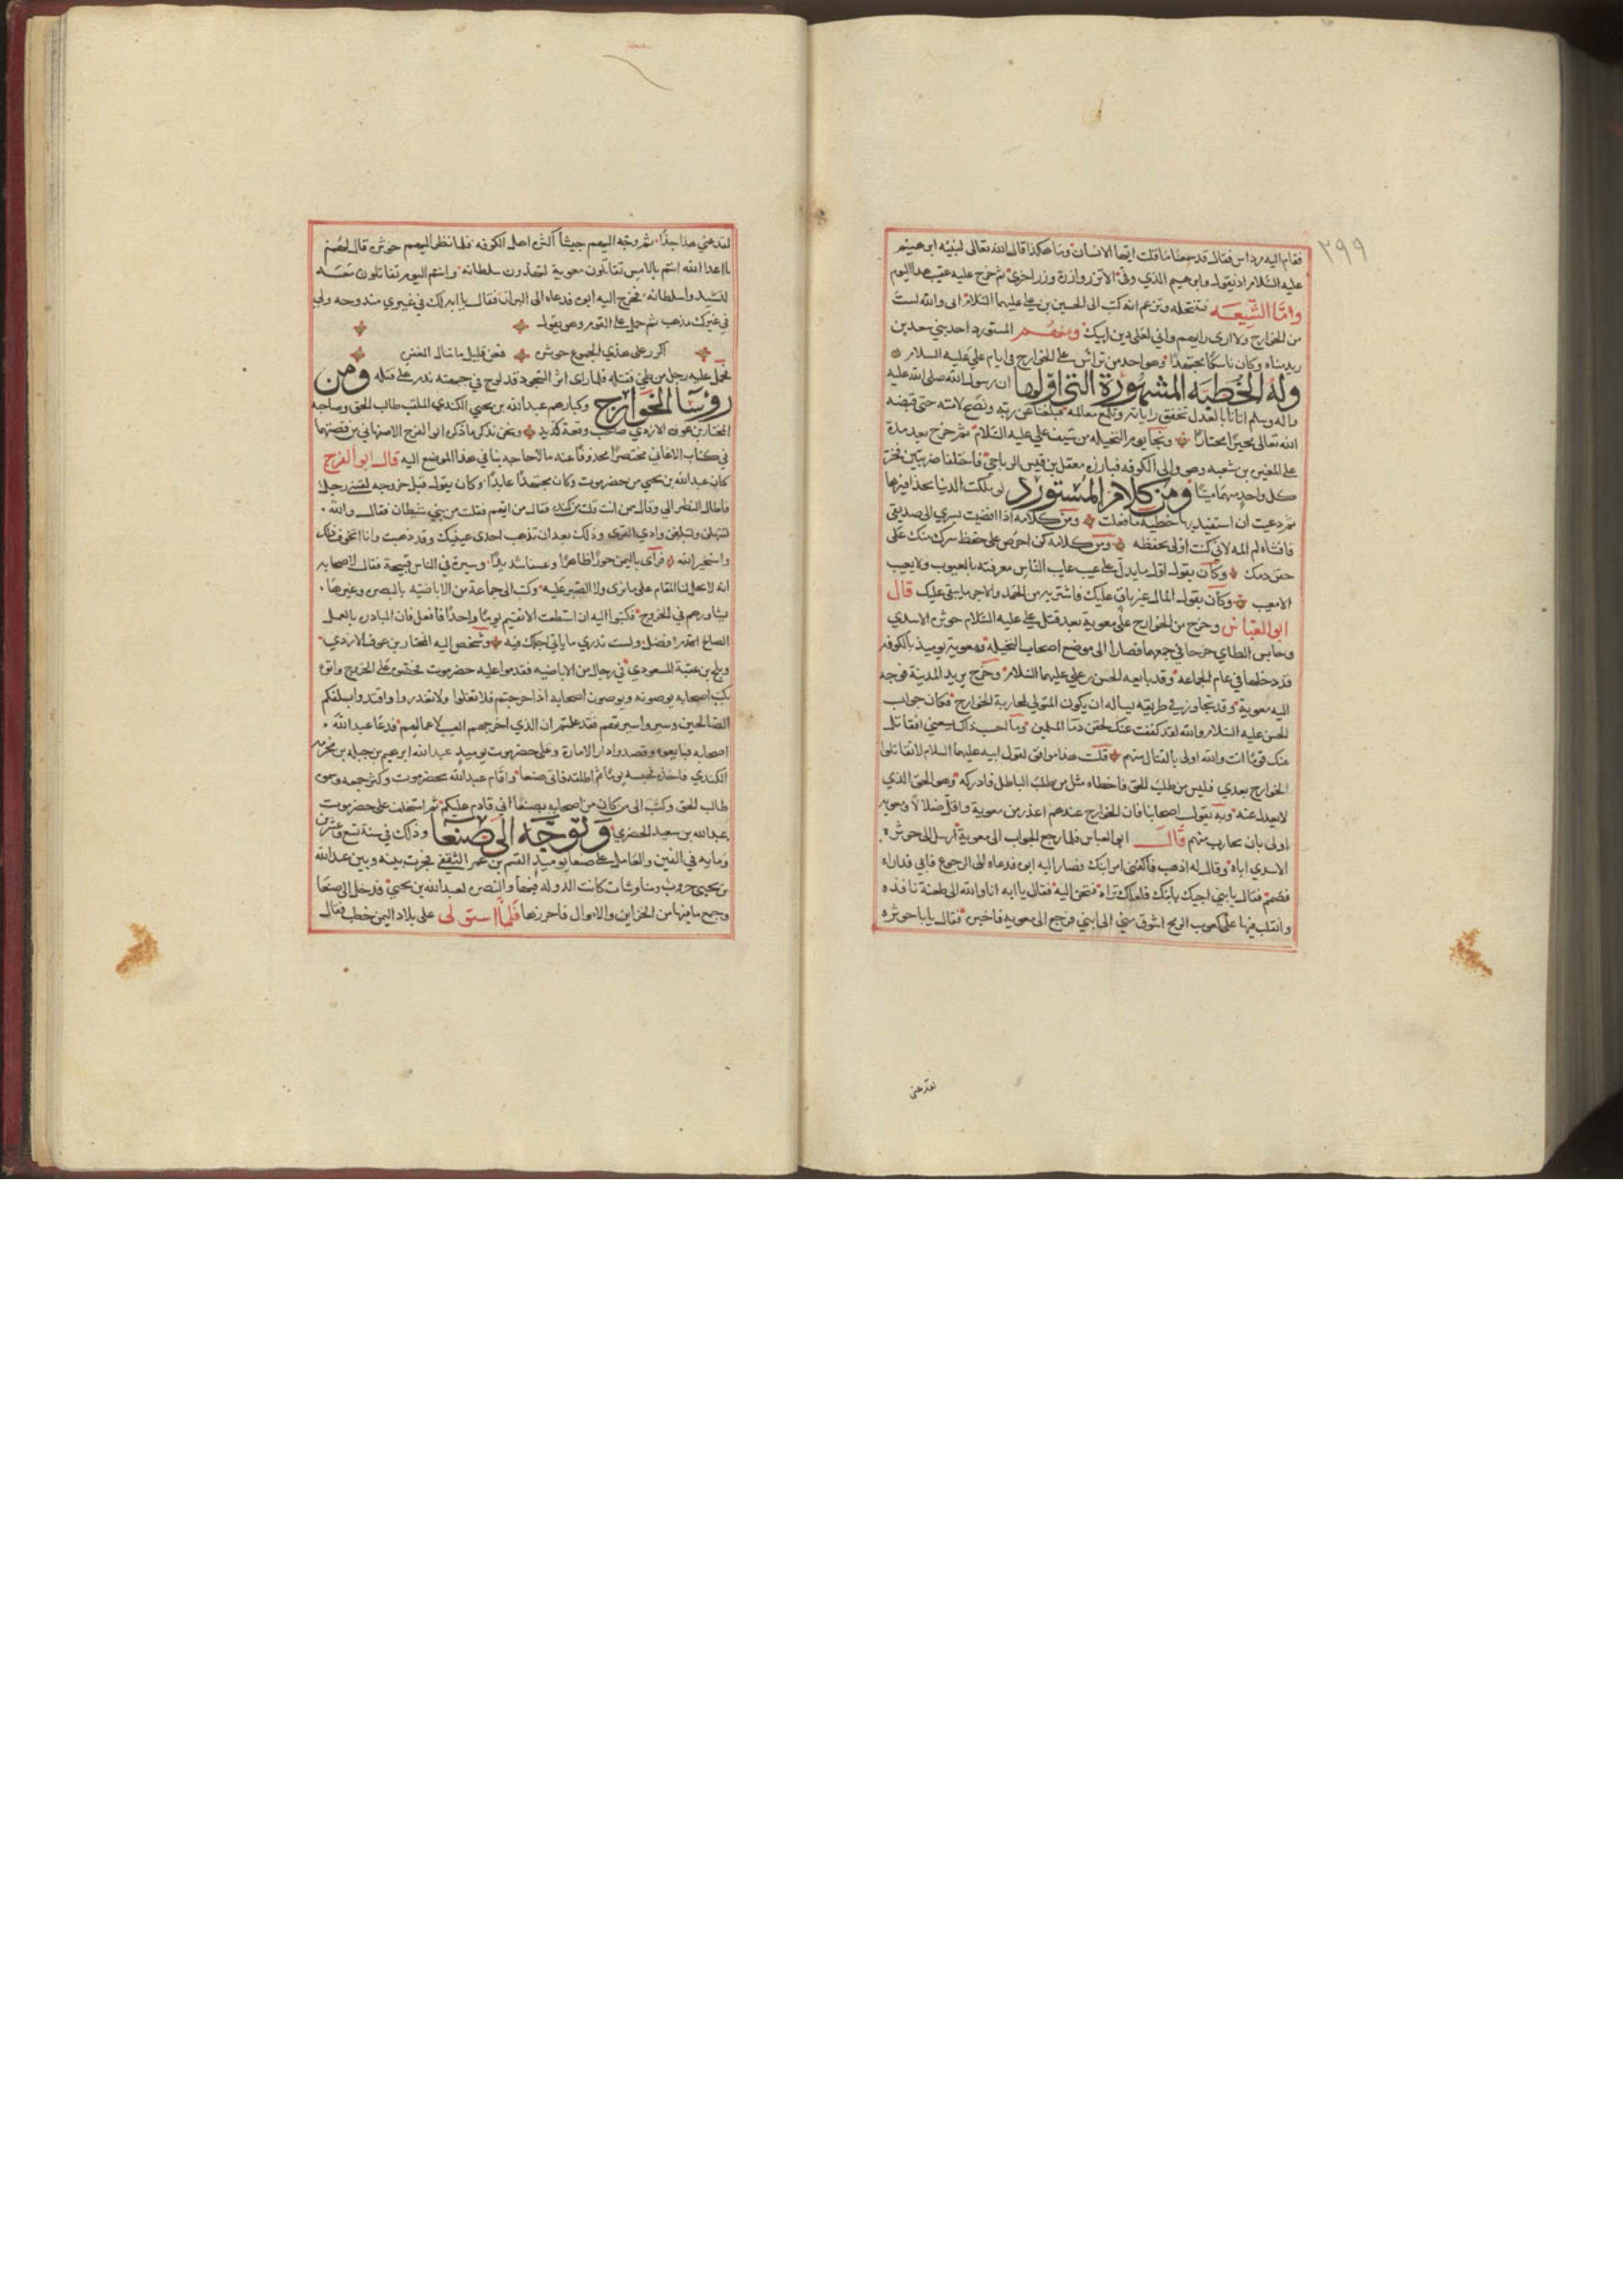 ٣٩٩
فقام اليه مرداس فقال قد سمعنا ما قلت ايها الانسان وما هكذا قال الله تعالى لنبيه ابرهيم
عليه السلام اذ يقول وابرهيم الذي وفى الا تزر وازرة وزر اخرى ثم خرج عليه عقيب هذا اليوم
واما الشيعه فتنتحله وتزعم انه كتب الى الحسين بن علي عليهما السلام اني والله لست
من الخوارج ولا ارى رايهم واني لعلى دين ابيك ومنهم المستورد احد بني سعد بن
زيد مناه وكان ناسكا مجتهدا وهو احد من ترأس على الخوارج في ايام علي عليه السلام
وله الخطبه المشهورة التي اولها ان رسول الله صلى الله عليه
واله وسلم اتانا بالعدل تخفق راياته وتلمع معالمه فبلغنا عن ربه ونصح لامته حتى قبضه
الله تعالى مخيرا مختارا ونجا يوم النخيله من سيف علي عليه السلام ثم خرج بعد مدة
على المغيرة بن شعبه وهو والي الكوفه فبارزه معقل بن قيس الرياحي فاختلفا ضربتين فخر
كل واحد منهما ميتا ومن كلام المستورد لو ملكت الدنيا بحذافيرها
ثم دعيت ان استفيد بها خطيه ما فعلت ومن كلامه اذا افضيت بسري الى صديقي
فافشاه لم المه لاني كنت اولى بحفظه ومن كلامه كن احرص على حفظ سرك منك على
حقن دمك وكان يقول اول ما يدل على عيب عايب الناس معرفته بالعيوب ولا يعيب
الا معيب وكان يقول المال غير باق عليك فاشتر به من الحمد والاجر ما يبقى عليك قال
ابو العباس وخرج من الخوارج على معوية بعد قتل علي عليه السلام حوثرة الاسدي
وحابس الطاي خرجا في جمعهما فصارا الى موضع اصحاب النخيلة ومعوية يوميذ بالكوفه
قد دخلها في عام الجماعه وقد بايعه الحسن بن علي عليهما السلام وخرج يريد المدينة فوجه
اليه معوية وقد تجاوز في طريقه يساله ان يكون المتولي لمحاربة الخوارج فكان جواب
الحسن عليه السلام والله لقد كففت عنك لحقن دما المسلمين وما احسب ذاك يسعني افقاتل
عنك قوما انت والله اولى بالقتال منهم قلت هذا موافق لقول ابيه عليهما السلام لا تقاتلوا
الخوارج بعدي فليس من طلب الحق فاخطاه مثل من طلب الباطل فادركه وهو الحق الذي
لا يعدل عنه وبه يقول اصحابنا فان الخوارج عندهم اعذر من معوية واقل ضلالا ومعوية
اولى بان يحارب منهم قال ابو العباس فلما رجع الجواب الى معوية ارسل الى حوثرة
الاسدي اباه وقال له اذهب فاكفني امر ابنك فصار اليه ابوه فدعاه الى الرجوع فابى فداراه
فصمم فقال يا بني اجيك بابنك فلعلك تراه فتحن اليه فقال يا ابه انا والله الى طعنة نافذه
واتقلب فيها على كعوب الرمح اشوق مني الى ابني فرجع الى معويه فاخبره فقال يا با حوثره
لقد عتى
لقد عتى هذا جدا ثم وجه اليهم جيشا اكثره اهل الكوفه فلما نظر اليهم حوثرة قال لهم
يا اعدا الله انتم بالامس تقاتلون معوية لتهدون سلطانه وانتم اليوم تقاتلون معه
لتشيدوا سلطانه فخرج اليه ابوه فدعاه الى البراز فقال يا ابه لك في غيري مندوحه ولي
في غيرك مذهب ثم حمل على القوم وهو يقول
اكرر على هذي الجموع حوثره فعن قليل ما تنال المغفره
فحمل عليه رجل من طي فقتله فلما راى اثر السجود قد لوح في جبهته ندم على قتله ومن
رؤسا الخوارج وكبارهم عبد الله بن يحيى الكندي الملقب طالب الحق وصاحبه
المختار بن عوف الازدي صاحب وقعة قديد ونحن نذكر ما ذكره ابو الفرج الاصبهاني من قصتهما
في كتاب الاغاني مختصرا محذوفا عنه ما لا حاجه بنا في هذا الموضع اليه قال ابو الفرج
كان عبد الله بن يحيى من حضرموت وكان مجتهدا عابدا وكان يقول قبل خروجه لقيني رجل
فاطال النظر الي وقال ممن انت قلت من كنده فقال من ايهم فقلت من بني شيطان فقال والله
لتملكن ولتبلغن وادي القرى وذلك بعد ان تذهب احدى عينيك وقد ذهبت وانا اتخوف ذلك
واستخير الله فرآى باليمن جورا ظاهرا وعسفا شديدا وسيرة في الناس قبيحة فقال لاصحابه
انه لا يحل لنا المقام على ما نرى ولا الصبر عليه وكتب الى جماعة من الاباضيه بالبصره وغيرها
يشاورهم في الخروج فكتبوا اليه ان استطعت الا تقيم يوما واحدا فافعل فان المبادره بالعمل
الصالح افضل ولست تدري ما ياتي اجلك فيه وشخص اليه المختار بن عوف الازدي
وبلج بن عقبة المسعودي في رجال من الاباضيه فقدموا عليه حضرموت فحرضوه على الخروج واتوه
بكتب اصحابه يوصونه ويوصون اصحابه اذا خرجتم فلا تغلوا ولا تغدروا واقتدوا بسلفكم
الصالحين وسيروا سيرتهم فقد علمتم ان الذي اخرجهم العيب لاعمالهم فدعا عبد الله
اصحابه فبايعوه وقصدوا دار الامارة وعلى حضرموت يوميذ عبد الله ابرهيم بن جبله بن مخرمه
الكندي فاخذه فحبسه يوما ثم اطلقه فاتى صنعا واقام عبد الله بحضرموت وكثر جمعه وسموه
طالب الحق وكتب الى من كان من اصحابه بصنعا اني قادم عليكم ثم استخلف على حضرموت
عبد الله بن سعيد الحضرمي وتوجه الى صنعا وذلك في سنة تسع وعشرين
ومايه في الفين والعامل على صنعا يوميذ القسم بن عمر الثقفي فجرت بينه وبين عبد الله
بن يحيى حروب ومناوشات كانت الدوله فيها والنصره لعبد الله بن يحيى فدخل الى صنعا
وجمع ما فيها من الخزاين والاموال فاحرزها فلما استولى على بلاد اليمن خطب فقال